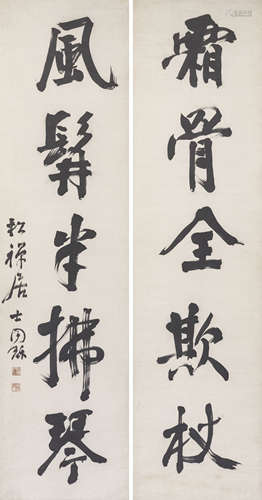 霜骨全欺杖
風髯半拂琴
松禪居士同龢